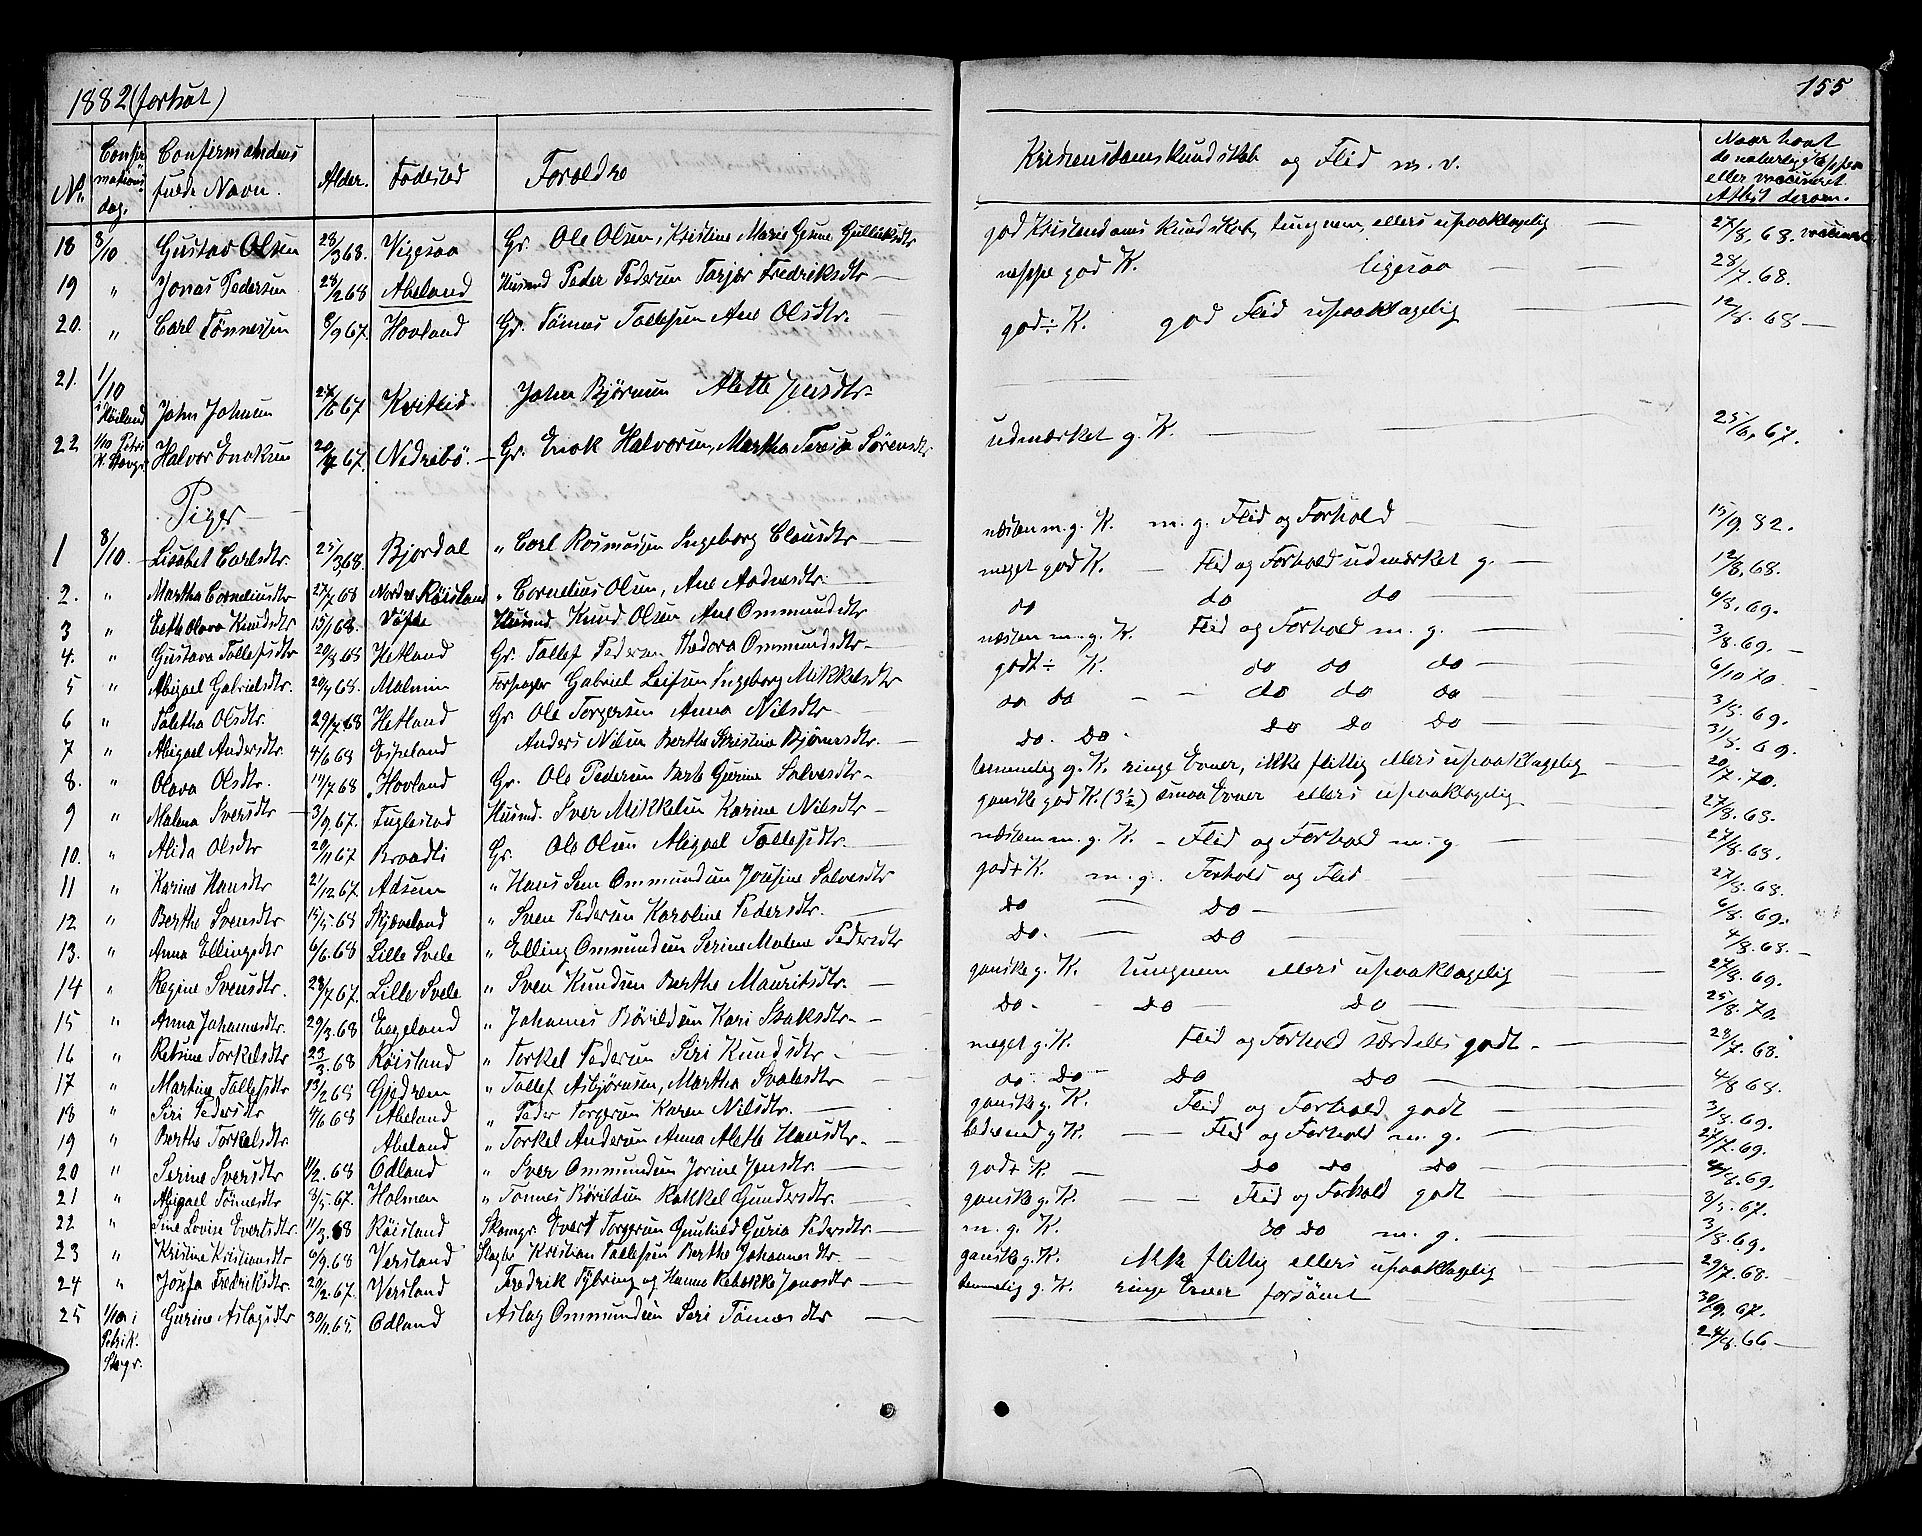 1882 (fortsat)
155
No. Confirmationsdag. Confirmandens fulde Navn. Alder. Födested Forældre Kristendomskundskab og Flid m. v. Naar havt de naturlige Kopper eller vaccineret. Attest derom.
18 8/10 Gustav Olsen 28/3 68. Vigesaa Gr. Ole Olsen, Kristine Marie Gulliksdtr god Kristendomskundskab, tungnem, ellers upaaklagelig 27/8, 68.
19 " Jonas Pedersen 28/2 68 Abeland Husmd Peder Pedersen Tarjer Fredriksdtr neppe god K. ligesaa 28/7. 68.
20. " Carl Tönnessen 8/9 67. Hovland Gr. Tönnes Tollefsen Ane Olsdtr. god ÷ K. god Flid upaaklagelig 12/8. 68
21. 1/10 i Höiland John Johnsen 67 Kvitlid John Bjørnsen Alette Jensdtr
22 1/10 Petri K. Stavgr Halvor Enoksen 20/7 67. Nedrebö. Gr. Enok Halvorsen, Martha Teresia Sørensdtr udmærket g. K. 25/6, 67.
Piger
1 8/10. Lisabet Carlsdtr. 25/3, 68. Bjordal " Carl Rosmussen Ingeborg Clausdtr næsten m. g. K. m. g. Flid og Forhold 15/9. 82.
2. " Martha Corneliusdtr 27/7 68 Nordre Röisland " Cornelius Olsen, Ane Andersdtr. meget god K. Flid og Forhold udmærket g. 12/8, 68.
3 " Olava Knudsdtr 15/1 68. Husmd. Knud Olsen Ane Ommundsdtr do do do 6/8, 69.
4. " Gustava Tollefsdtr 20/8 68 Hetland Gr. Tollef Pedersen Thedora Ommundsdtr næsten m. g. K. Flid og Forhold m. g. 3/8. 69.
5 " Abigael Gabrielsdtr. 20/4 68. Malmin Gabriel Leifsen Ingeborg Mikkelsdtr godt ÷ K. do do do 6/10 70.
6 " Taletha Olsdtr. 29/7 68 Hetland Gr. Ole Torgersen Anna Nilsdtr do do do do do 3/8. 69.
7 " Abigael Andersdtr. 4/6 68 Espeland Anders Nilsen Berthe Kristine Bjørnsdtr. do. do. do do do 31/8. 69.
8. " Olava Olsdtr. 19/7 68 Hovland Gr. Ole Pedersen Berte Gurine Salvesdtr temmelig g. K. ringe Evner, ikke flittig ellers upaaklagelig 20/7. 70.
9 " Malena Sversdtr 3/9. 67. Fuglestad Husmd. Sver Mikkelsen Karine Nilsdtr ganske god K. (3½) smaa Evner ellers upaaklagelig 27/8. 68.
10. " Alida Olsdtr 20/11 67 Braadli Gr. Ole Olsen Abigael Tollefsdtr. næsten m. g. K. - Flid og Forhold m. g. 27/8. 68.
11 " Karine Hansdtr 2/12. 67. Adsem " Hans Sem Ommundsen Josine Salvesdtr god + K. m. g. Forhold og Flid 27/8. 68.
12 " Berthe Svensdtr 15/5. 68 Skjæveland " Sven Pedersen Karoline Pedersdtr. do do 6/8. 69.
13. " Anna Ellingsdtr 6/6. 68 Lille Svele " Elling Ommundsen Serine Malene Pedersdtr do. do 4/8. 68.
14 " Regine Svensdtr. 28/7. 67. Lille Svele " Sven Knudsen Berthe Mauritsdtr. ganske g. K. tungnem ellers upaaklagelig 27/8. 69.
15 " Anna Johannesdtr. 29/3. 68 Eegeland " Johannes Börildsen Kari Isaksdtr. do. do do 25/8. 70.
16 " Retsine Torkelsdtr 23/3. 68 Röisland " Torkel Pedersen Siri Knudsdtr meget g. K. Flid og Forhold særdeles godt. 28/7. 68.
17 " Martine Tollefsdtr 13/2 68 Gjedrem " Tollef Asbjørnsen, Martha Svalesdtr do do do do 4/8 68.
18 " Siri Pedersdtr 4/6 68 Abeland " Peder Torgersen Karen Nilsdtr. ganske g. K. Flid og Forhold godt 3/8. 69.
19 " Berthe Torkelsdtr Abeland " Torkel Andersen Anna Alette Hansdtr. g K. Flid og Forhold m. g. 27/7. 69.
20 " Serine Sversdtr 1/2. 68 Odland " Sver Ommundsen Jorine Jensdtr. god + K. do do do 4/8. 69.
21 " Abigael Tönnesdtr 3/5. 67. Holmen " Tönnes Börildsen Rakkel Gundersdtr. ganske g. K. Flid og Forhold godt 8/5. 67.
22 " Sine Lovise Evertsdtr. 11/3. 68 Röisland Skomgr. Evert Torgersen Gunhild Guria Pedersdtr. m. g. K. do do m. g. 3/8. 69.
23 " Kristine Kristiansdtr 6/9. 68 Versland Kristian Tollefsen Berthe Johannesdtr ganske g. K. ikke flittig ellers upaaklagelig 29/7. 68.
24 " Josefa Fredriksdtr. 20/2. 67. Versland Fredrik Tybring og Hanne Rebekka Jonasdtr temmelig g. K. ringe Evner forsömt 30/9. 67.
25 1/10 i Petrik. Stavgr. Gurine Aslagsdtr 30/11. 65. Odland Aslag Ommundsen Seri Tönnesdtr 24/8. 66